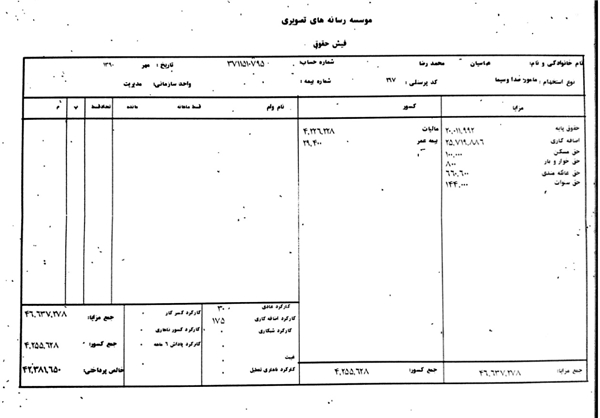 موسسه رسانه های تصویری
فیش حقوق
نام خانوادگی و نام: عباسیان محمد رضا شماره حساب: ۳۷۱۱۵۱۰۷۹۵ تاریخ: مهر ۱۳۹۰
نوع استخدام: مامور صدا وسیما کد پرسنلی: ۲۶۷ شماره بیمه: واحد سازمانی: مدیریت
مزایا کسور نام وام قسط ماهانه مانده تعدادقسط
حقوق پایه ۲۰,۰۱۱,۹۹۲ مالیات ۴,۲۲۶,۲۲۸
اضافه کاری ۲۵,۷۱۹,۸۸۶ بیمه عمر ۲۹,۴۰۰
حق مسکن ۱۰۰,۰۰۰
حق خوار و بار ۸۰۰
حق عائله مندی ۶۶۰,۶۰۰
حق سنوات ۱۴۴,۰۰۰
کارکرد عادی ۳۰
کارکرد اضافه کاری ۱۷۵ کارکرد کسر کار ۰ جمع مزایا: ۴۶,۶۳۷,۲۷۸
کارکرد شبکاری ۰ کارکرد کسور ناهاری ۰
کارکرد پاداش ۶ ماهه ۰ جمع کسور: ۴,۲۵۵,۶۲۸
غیبت ۰
کارکرد عادی تعطیل ۰ خالص پرداختی: ۴۲,۳۸۱,۶۵۰
جمع مزایا: ۴۶,۶۳۷,۲۷۸ جمع کسور: ۴,۲۵۵,۶۲۸